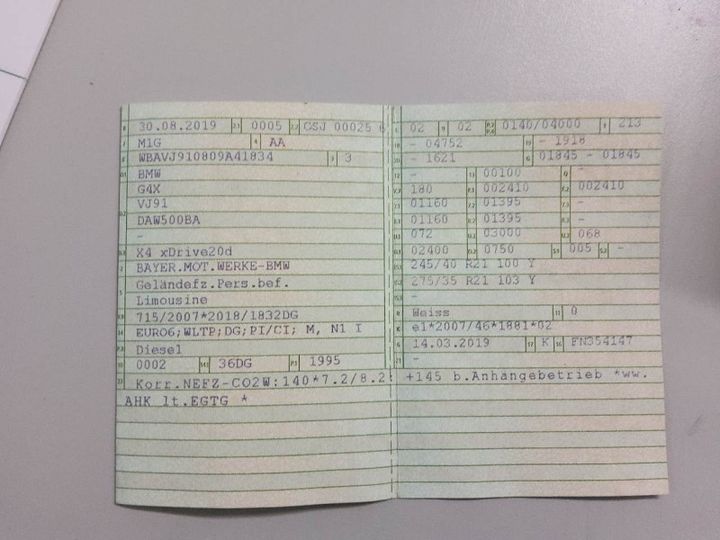 30.08.2019 0005 GSJ 00025 6
M1G AA
WBAVJ910809A41834 3
BMW
G4X
VJ91
DAW500BA
-
X4 xDrive20d
BAYER.MOT.WERKE-BMW
Geländefz.Pers.bef.
Limousine
715/2007*2018/1832DG
EURO6;WLTP;DG;PI/CI; M, N1 I
Diesel
0002 36DG 1995
Korr.NEFZ-CO2W:140*7.2/8.2:
AHK lt.EGTG *
02 02 0140/04000 213
- 04752 - 1918
- 1621 01845 - 01845
- 00100 -
180 002410 002410
01160 01395 -
01160 01395 -
072 03000 068
02400 0750 005 -
245/40 R21 100 Y
275/35 R21 103 Y
-
Weiss 0
e1*2007/46*1881*02
14.03.2019 K FN354147
-
+145 b.Anhängebetrieb *ww.